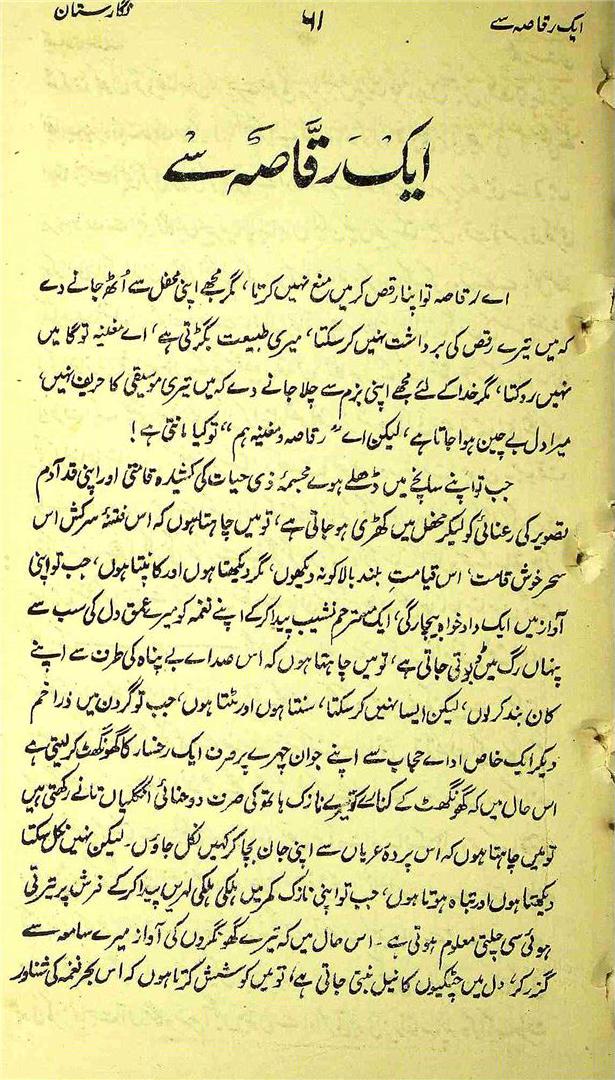 ایک رقاصہ سے ۶۱ نگارستان
ایک رقّاصہ سے
اے رقاصہ تو اپنا رقص کر میں منع نہیں کرتا، مگر مجھے اپنی محفل سے اُٹھ جانے دے
کہ میں تیرے رقص کی برداشت نہیں کر سکتا، میری طبیعت بگڑتی ہے، اے مغنیہ تو گا میں
نہیں روکتا، مگر خدا کے لئے مجھے اپنی بزم سے چلا جانے دے کہ میں تیری موسیقی کا حریف نہیں،
میرا دل بے چین ہوا جاتا ہے، لیکن اے "رقاصہ و مغنیہ ہم" تو کیا مانتی ہے!
جب تو اپنے سانچے میں ڈھلے ہوے مجسمۂ ذی حیات کی کشیدہ قامتی اور اپنی قد آدم
تصویر کی رعنائی کو لیکر محفل میں کھڑی ہو جاتی ہے، تو میں چاہتا ہوں کہ اس فتنۂ سرکش اس
سحر خوش قامت، اس قیامتِ بلند بالا کو نہ دیکھوں، مگر دیکھتا ہوں اور کانپتا ہوں، جب تو اپنی
آواز میں ایک داد خواہ بیچارگی، ایک مسترحم نشیب پیدا کر کے اپنے نغمہ کو میرے عمق دل کی سب سے
پنہاں رگ میں ڈبوتی جاتی ہے، تو میں چاہتا ہوں کہ اس صداے بے پناہ کی طرف سے اپنے
کان بند کر لوں، لیکن ایسا نہیں کر سکتا، سنتا ہوں اور لٹتا ہوں، جب تو گردن میں ذرا خم
دیکر ایک خاص اداے حجاب سے اپنے جوان چہرے پر صرف ایک رخسار کا گھونگھٹ کر لیتی ہے
اس حال میں کہ گھونگھٹ کے کنارے کو تیرے نازک ہاتھ کی صرف دو حنائی انگلیاں تانے رکھتی ہیں
تو میں چاہتا ہوں کہ اس پردۂ عریاں سے اپنی جان بچا کر کہیں نکل جاؤں۔ لیکن نہیں نکل سکتا
دیکھتا ہوں اور تباہ ہوتا ہوں، جب تو اپنی نازک کمر میں ہلکی ہلکی لہریں پیدا کر کے فرش پر تیرتی
ہوئی سی چلتی معلوم ہوتی ہے۔ اس حال میں کہ تیرے گھونگروں کی آواز میرے سامعہ سے
گزر کر، دل میں چٹکیوں کا نیل بنتی جاتی ہے، تو میں کوشش کرتا ہوں کہ اس بحر نغمہ کی شناور